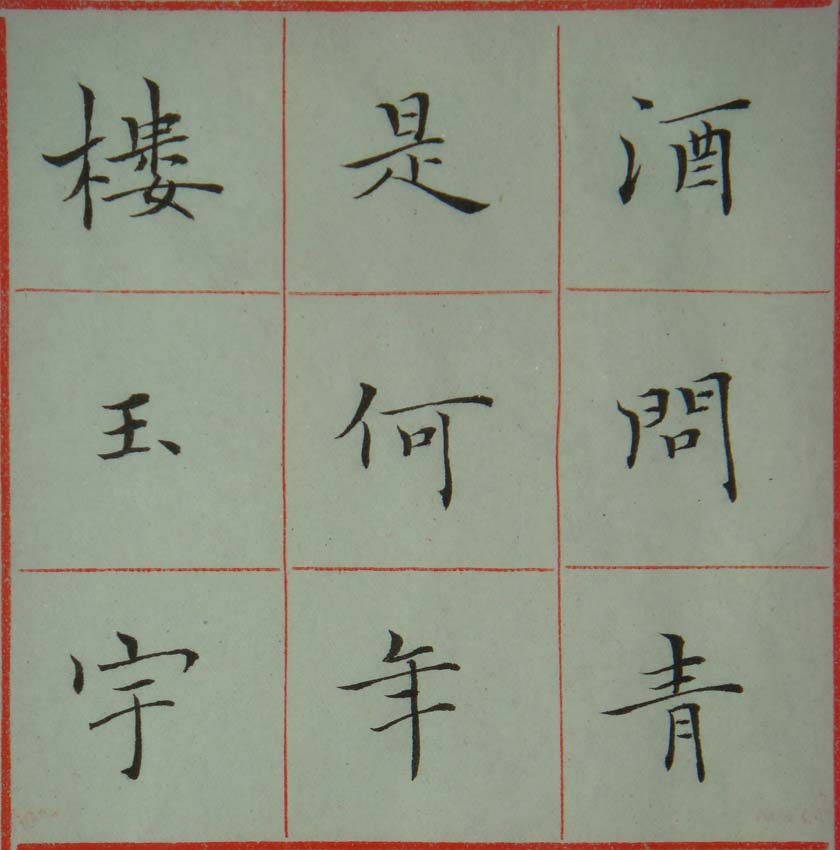 酒問青
是何年
樓玉宇